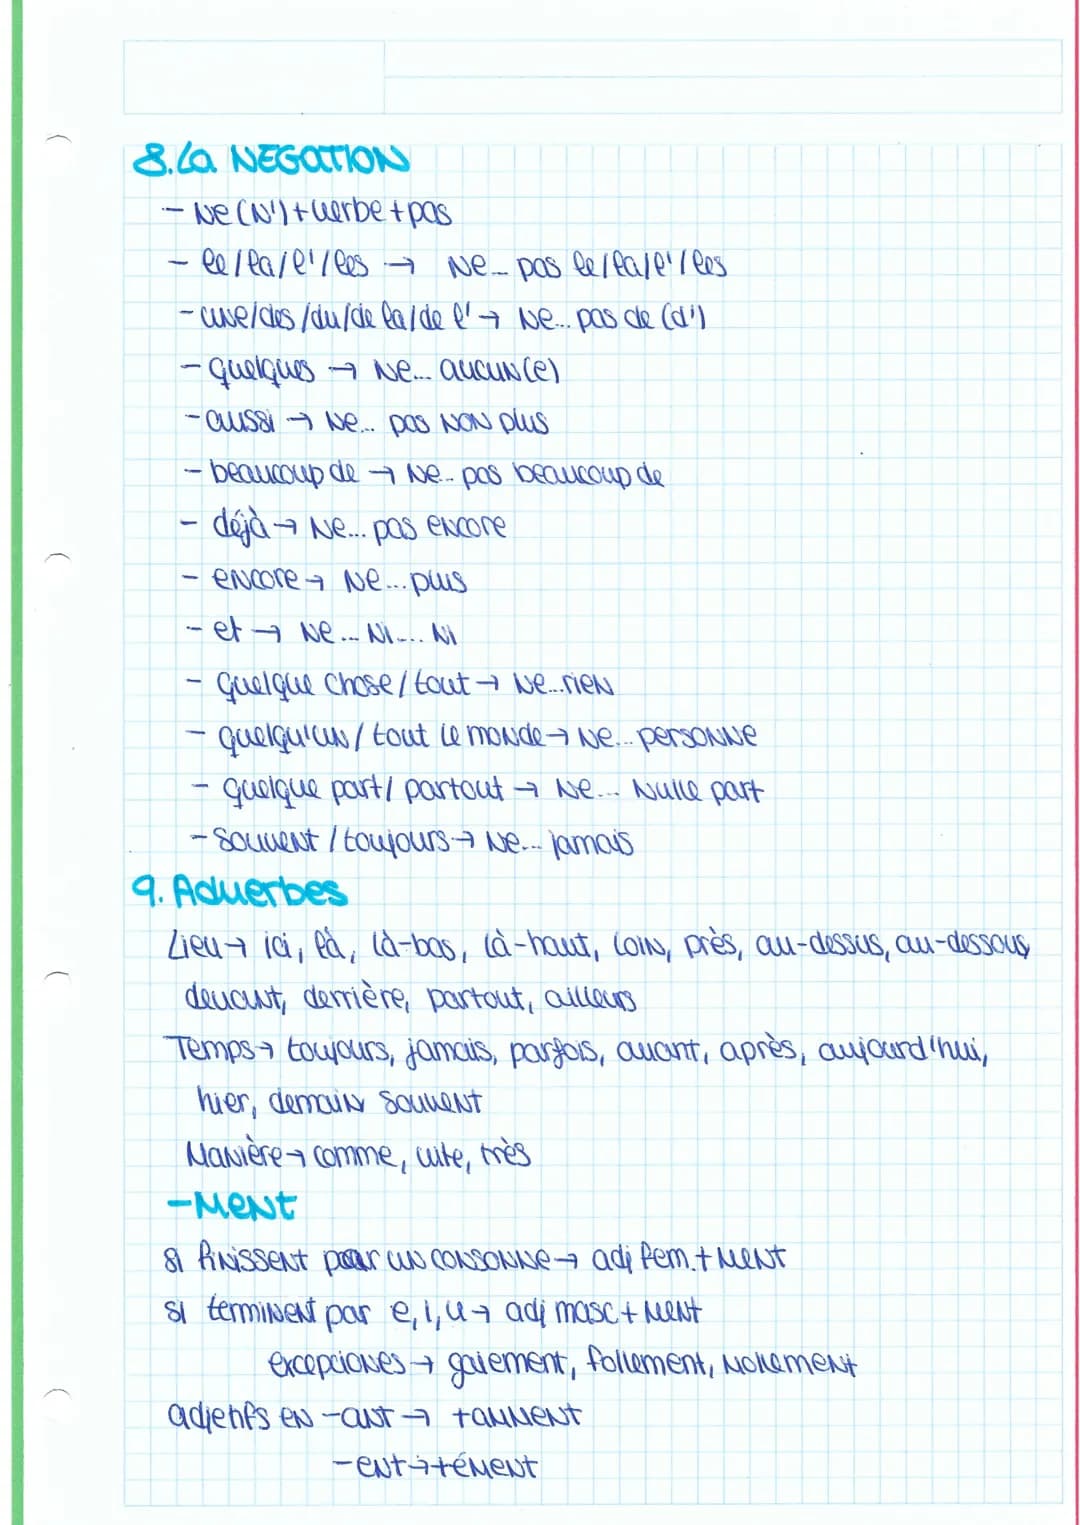 8. La NEGATION
- Ne (N') + verbe + pas
- le/la/l'/les → Ne... pas le/la/l'/les
- une/des/du/de la/de l' → Ne... pas de (d')
- quelques → Ne... aucun(e)
- aussi → Ne... pas non plus
- beaucoup de → Ne... pas beaucoup de
- déjà → Ne... pas encore
- encore → Ne... plus
- et → Ne... Ni... Ni
- quelque chose / tout → Ne... rien
- quelqu'un / tout le monde → Ne... personne
- quelque part / partout → Ne... Nulle part
- Souvent / toujours → Ne... jamais
9. Adverbes
Lieu → ici, là, là-bas, là-haut, loin, près, au-dessus, au-dessous,
devant, derrière, partout, ailleurs
Temps → toujours, jamais, parfois, avant, après, aujourd'hui,
hier, demain souvent
Manière → comme, vite, très
-Ment
si finissent par un consonne → adj fem. + ment
si terminent par e, i, u → adj masc + ment
excepciones → gaiement, follement, mollement
adjetifs en -ant → +amment
-ent → +ément